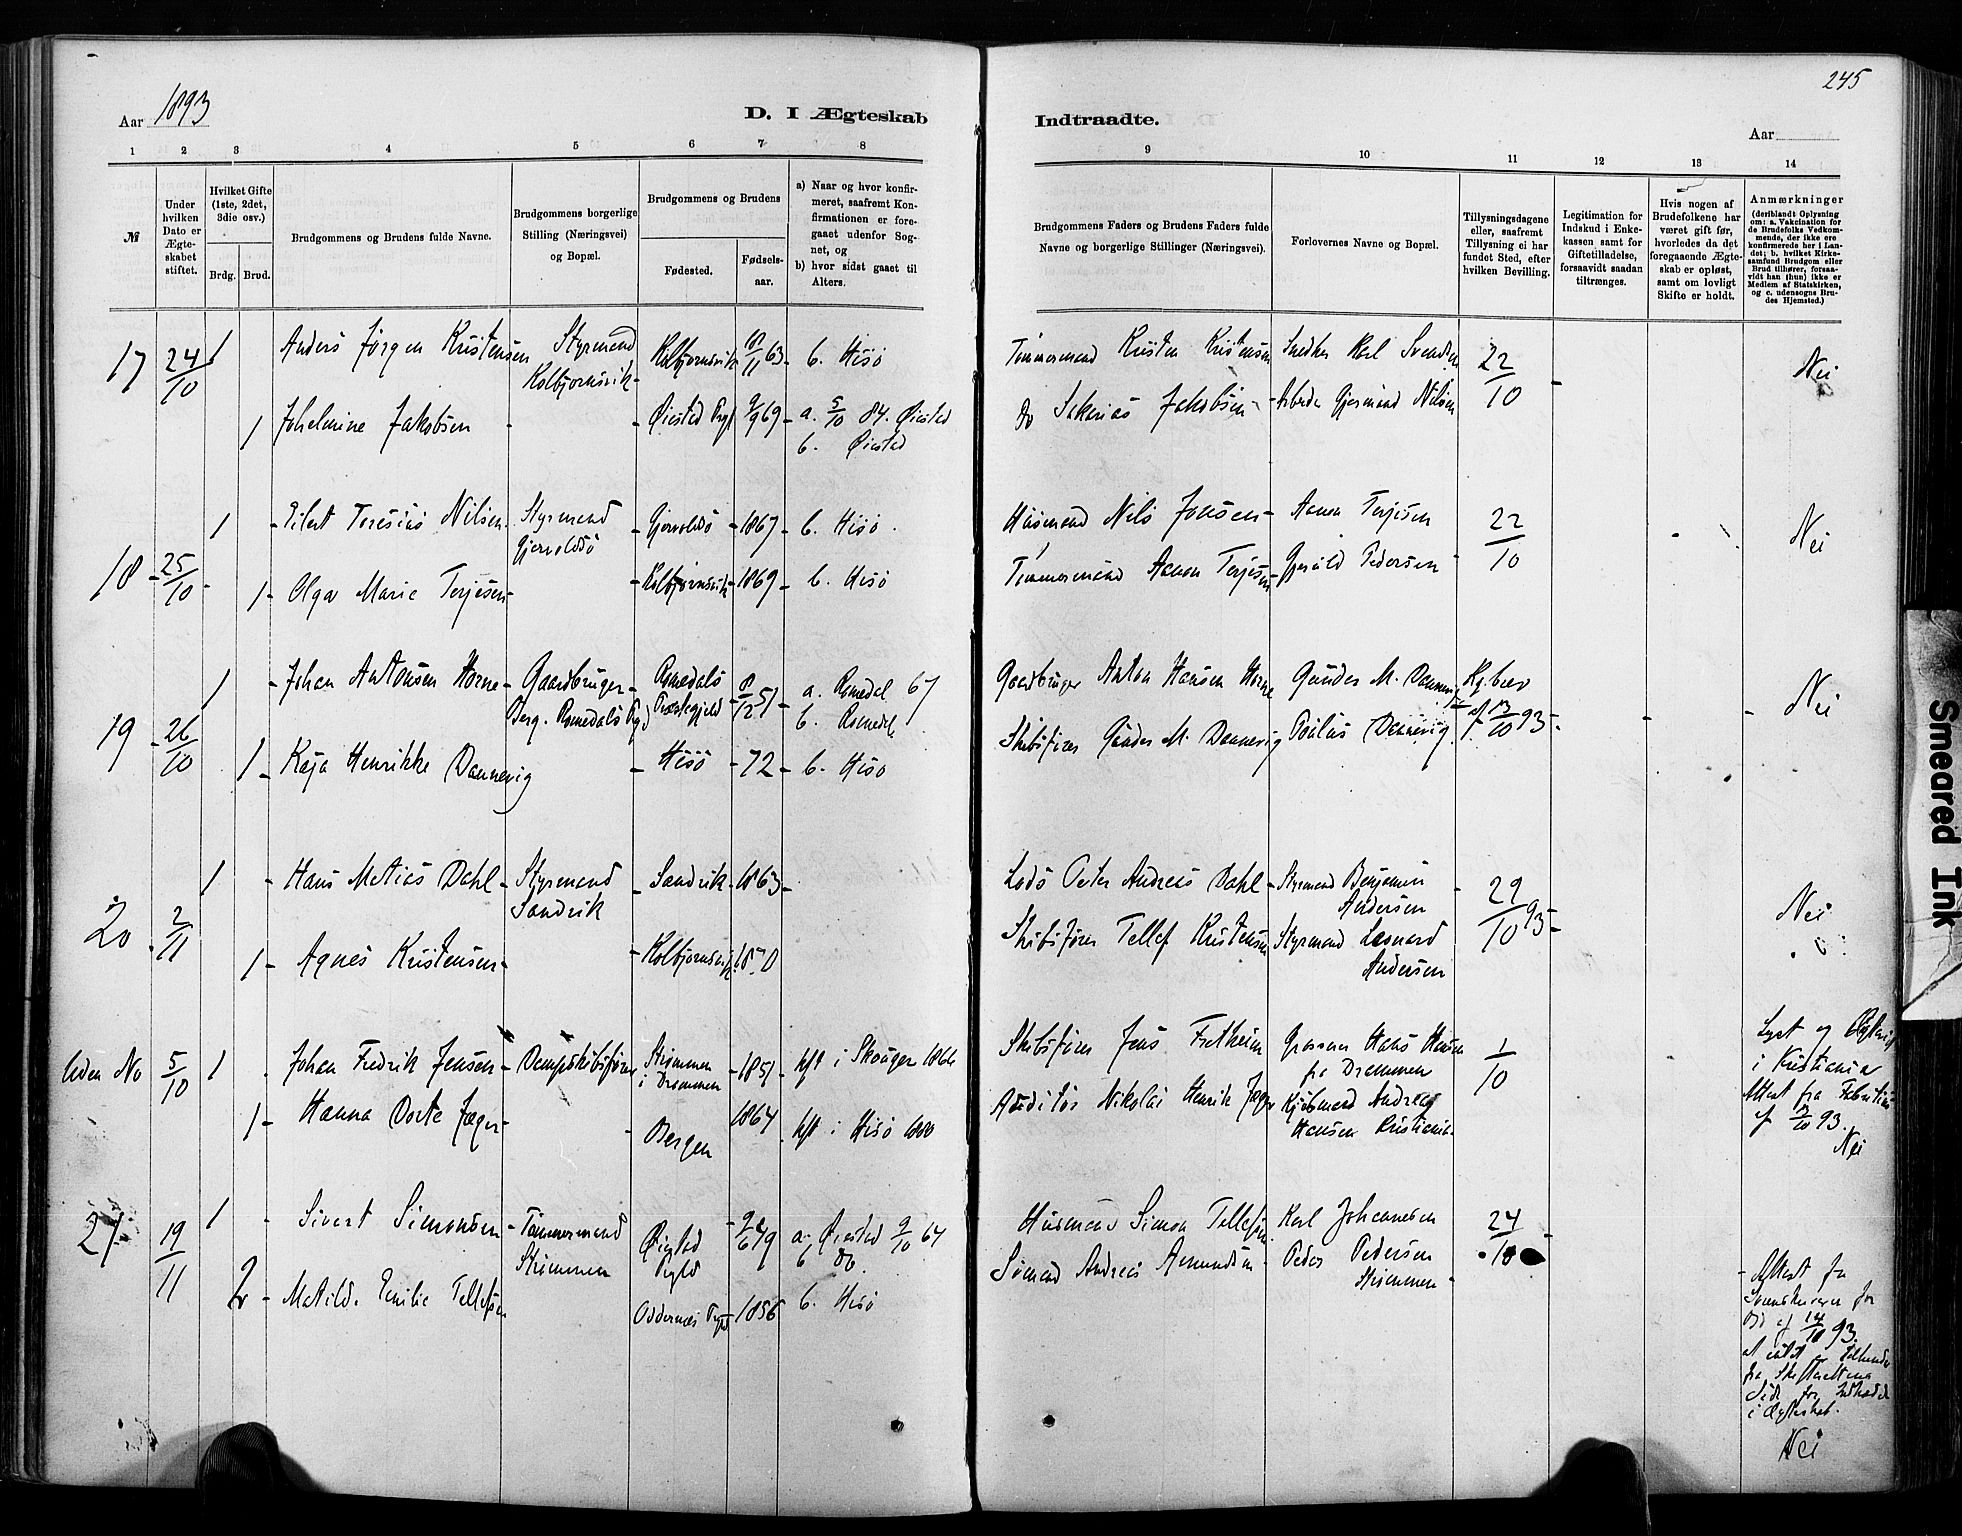 245
Aar 1893
D. I Ægteskab
Indtraadte.
Aar
1 2 3 4 5 6 7 8
9 10 11 12 13 14
№
Under hvilken Dato er Ægteskabet stiftet.
Hvilket Gifte (1ste, 2det, 3die osv.)
Brdg. Brud.
Brudgommens og Brudens fulde Navne.
Brudgommens borgerlige Stilling (Næringsvei) og Bopæl.
Brudgommens og Brudens
Fødested.
Fødselsaar.
a) Naar og hvor konfirmeret, saafremt Konfirmationen er foregaaet udenfor Sognet, og
b) hvor sidst gaaet til Alters.
Brudgommens Faders og Brudens Faders fulde Navne og borgerlige Stillinger (Næringsvei).
Forlovernes Navne og Bopæl.
Tillysningsdagene eller, saafremt Tillysning ei har fundet Sted, efter hvilken Bevilling.
Legitimation for Indskud i Enkekassen samt for Giftetilladelse, forsaavidt saadan tiltrænges.
Hvis nogen af Brudefolkene har været gift før, hvorledes da det foregaaende Ægteskab er opløst, samt om lovligt Skifte er holdt.
Anmærkninger
(deriblandt Oplysning om: a. Vakcination for de Brudefolks Vedkommende, der ikke ere konfirmerede her i Landet; b. hvilket Kirkesamfund Brudgom eller Brud tilhører, forsaavidt han (hun) ikke er Medlem af Statskirken, og c. udensogns Brudes Hjemsted.)
17 24/10 1 Anders Jørgen Kristensen Styrmand Kolbjørnsvik Kolbjørnsvik 8/11 63 b. Hisø Tømmermand Kristen Kristensen Snedker Karl Svendsen 22/10 Nei
1 Johelmine Jakobsen Øiestad Pgld 9/9 69 a. 5/10 84. Øiestad b. Øiestad Do Sakarias Jakobsen Arbeider Gjermund Nilsen
18 25/10 1 Eilert Teresius Nilsen Styrmand Gjervoldsø Gjervoldsø 1867 b. Hisø Husmand Nils Jensen Aanon Terjesen 22/10 Nei
1 Olga Marie Terjesen Kolbjørnsvik 1869 b. Hisø Tømmermand Aanon Terjesen Gjeruld Pedersen
19 26/10 1 Johan Antonsen Horne Gaardbruger Berg. Romedals Pgd Romedals Præstegjeld 8/12 51 a. Romedal 67 b. Romedal Gaardbruger Anton Hansen Horne Gunder M. Dannevig Kg. brev af 13/10 93 Nei
1 Kaja Henrikke Dannevig Hisø 72 b. Hisø Skibsfører Gunder M. Dannevig Paulus Dannevig
20 2/11 1 Hans Matias Dahl Styrmand Sandvik Sandvik 1863 Lods Peter Andreas Dahl Styrmand Benjamin Andersen 29/10 93 Nei
1 Agnes Kristensen Kolbjørnsvik 1870 Skibsfører Tellef Kristensen Styrmand Leonard Andersen
Uden No 5/10 1 Johan Fredrik Jensen Dampskibsfører Strømmen i Drammen 1851 kft i Skouger 1866 Skibsfører Jens Hans Hansen fra Drammen 1/10 Lyst og i Kristiania Attest fra af 13/10 93. Nei
1 Hanna Dorte Jæger Bergen 1864 kft i Hisø 1880 Auditør Nikolai Henrik Jæger Kjøbmand Andreas Hansen Kristiania
21 19/11 1 Sivert Simonsen Tømmermand Strømmen Øiestad Pgld 9/6 49 a. Øiestad 9/10 64 b Do. Husmand Simon Tellefsen Karl Johannesen 24/10
2 Matilde Emilie Tellefsen Oddernes Pgld 1856 b. Hisø Sømand Andreas Aamundsen Peder Pedersen Strømmen Attest fra for af 14/10 93. at intet er fra Skifterettens Side for Indtrædelse i Ægteskab. Nei
Smeared Ink